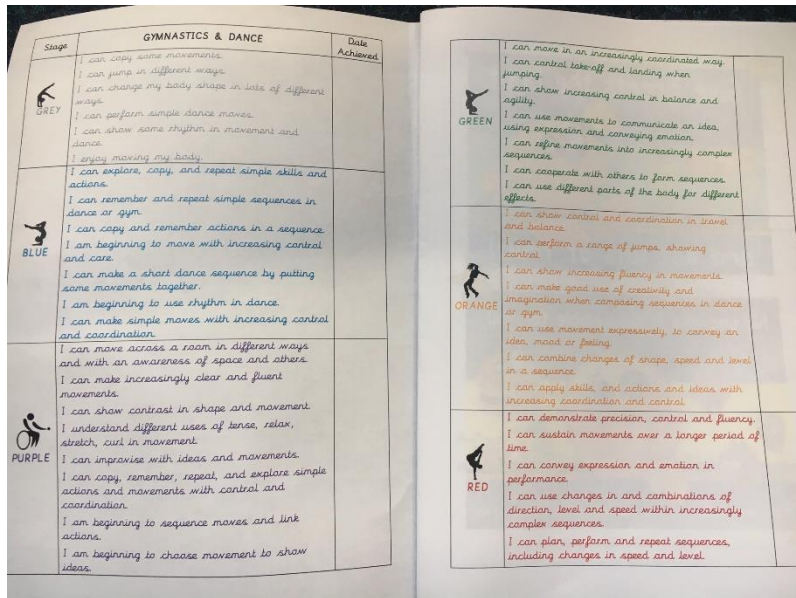 GYMNASTICS & DANCE
Stage
Date
Achieved
GREY
I can copy some movements.
I can jump in different ways.
I can change my body shape in lots of different
ways.
I can perform simple dance moves.
I can show some rhythm in movement and
dance.
I enjoy moving my body.
BLUE
I can explore, copy, and repeat simple skills and
actions.
I can remember and repeat simple sequences in
dance or gym.
I can copy and remember actions in a sequence.
I am beginning to move with increasing control
and care.
I can make a short dance sequence by putting
some movements together.
I am beginning to use rhythm in dance.
I can make simple moves with increasing control
and coordination.
PURPLE
I can move across a room in different ways
and with an awareness of space and others.
I can make increasingly clear and fluent
movements.
I can show contrast in shape and movement.
I understand different uses of tense, relax,
stretch, curl in movement.
I can improvise with ideas and movements.
I can copy, remember, repeat, and explore simple
actions and movements with control and
coordination.
I am beginning to sequence moves and link
actions.
I am beginning to choose movement to show
ideas.
GREEN
I can move in an increasingly coordinated way.
I can control take-off and landing when
jumping.
I can show increasing control in balance and
agility.
I can use movements to communicate an idea,
using expression and conveying emotion.
I can refine movements into increasingly complex
sequences.
I can cooperate with others to form sequences.
I can use different parts of the body for different
effects.
ORANGE
I can show control and coordination in travel
and balance.
I can perform a range of jumps, showing
control.
I can show increasing fluency in movements.
I can make good use of creativity and
imagination when composing sequences in dance
or gym.
I can use movement expressively, to convey an
idea, mood or feeling.
I can combine changes of shape, speed and level
in a sequence.
I can apply skills, and actions and ideas with
increasing coordination and control.
RED
I can demonstrate precision, control and fluency.
I can sustain movements over a longer period of
time.
I can convey expression and emotion in
performance.
I can use changes in and combinations of
direction, level and speed within increasingly
complex sequences.
I can plan, perform and repeat sequences,
including changes in speed and level.